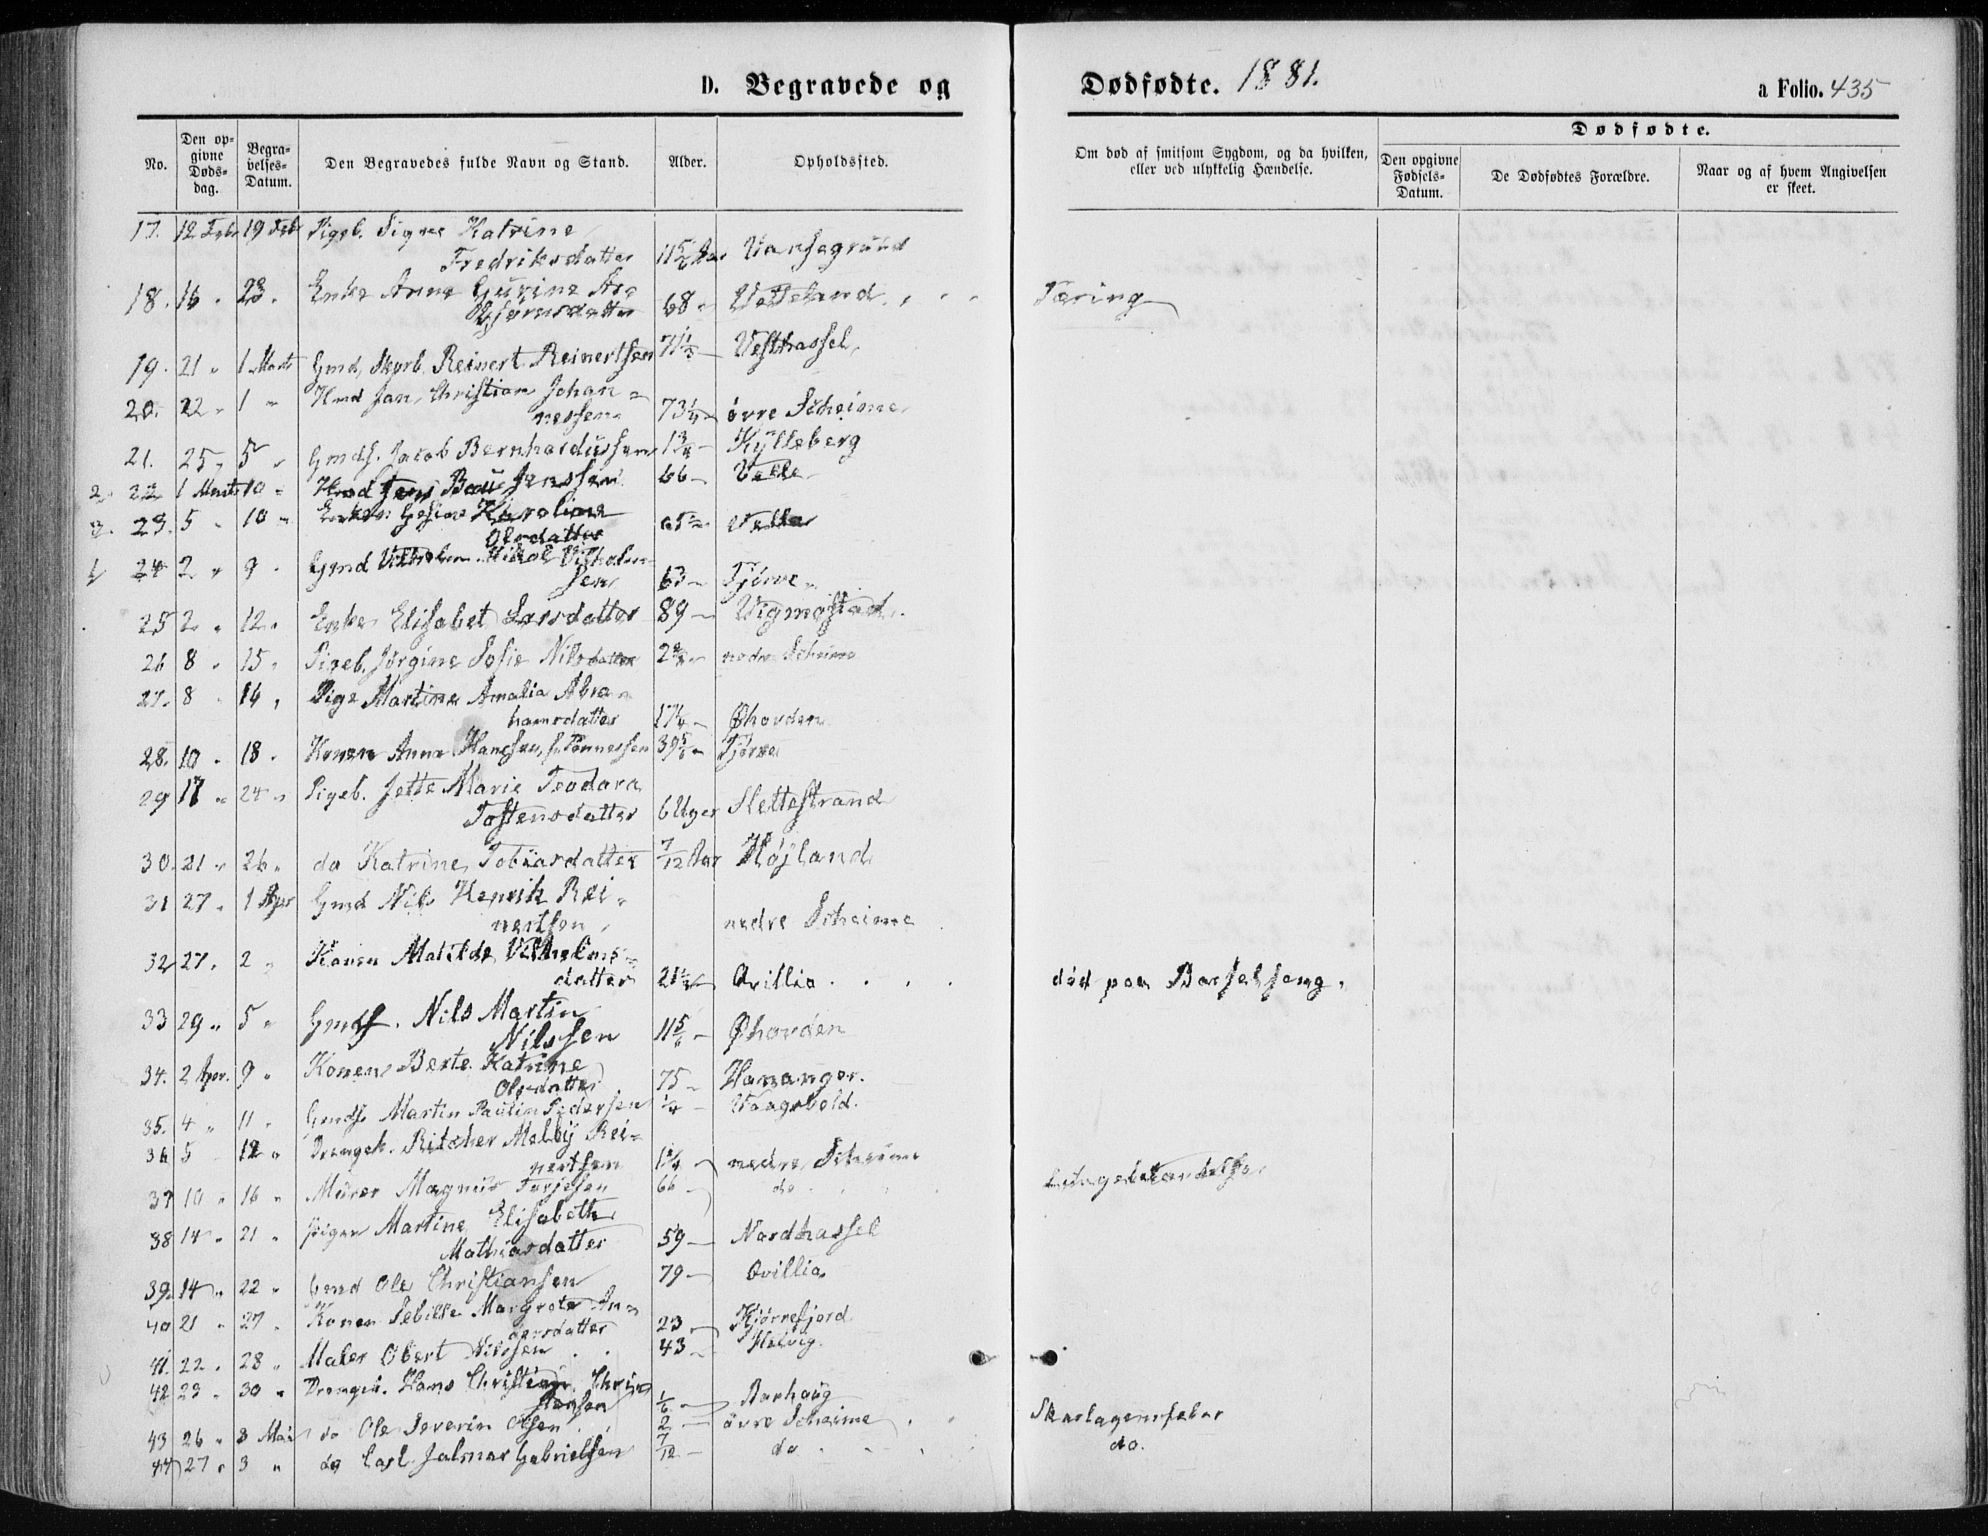 D. Begravede og
Dødfødte. 1881.
a Folio. 435
No.
Den op-
givne
Døds-
dag.
Begra-
velses-
Datum.
Den Begravedes fulde Navn og Stand.
Alder.
Opholdssted.
Om død af smitsom Sygdom, og da hvilken,
eller ved ulykkelig Hændelse.
Dødfødte.
Den opgivne
Fødsels-
Datum.
De Dødfødtes Forældre.
Naar og af hvem Angivelsen
er skeet.
17. 12 Febr 19 Febr Pigeb. Signe Katrine
Fredriksdatter 11 5/6 Aar Vansegrund
18. 16 " 23 " Enke Anne Gurine As-
bjørnsdatter 68 " Vetteland " " " Tæring
19. 21 " 1 Marts Gmd, Skprb. Reinert Reinertsen 71 1/2 — Vesthassel
20. 22 " 1 " Hmd Jan Christian Johan-
nessen 73 1/4 — övre Skeime
21. 25 " 5 " Gmds. Jacob Bernhardussen 1 3/4 — Kylleberg
2 22 1 Marts 10 " Hmd Jens Bau Jenssen 66 — Velle
3. 23. 5 " 10 " Enken Gesine Karoline
Olsdatter 65 — Velle
1 24 2 " 9 " Gmd Vilhelm Mikal Vilhelm-
sen 63 — Tjörve
25 2 " 12 " Enke Elisabet Larsdatter 89 — Vigmostad.
26 8 " 15 " Pigeb. Jörgine Sofie Nilsdatter nedre Skeime
27. 8 " 14 " Pige Martine Amalia Abra-
hamsdatter 17 1/4 — Øhovden
28. 10 " 18 " Konen Anna Hanssen, f. Tønnessen 39 5/6 — Tjörve
29 17 " 24 " Pigeb. Jette Marie Teodora
Tostensdatter 6 Uger Slettestrand
30. 21 " 26 " do Katrine Tobiasdatter 7/12 Aar Höjland
31 27 " 1 Apr Gmd Nils Henrik Rei-
nertsen nedre Skeime
32 27. 2 " Konen Matilde Vilhelms-
datter 21 1/2 — Qvillia . . . . död paa Barselseng.
33 29 " 5 " Gmds. Nils Martin
Nilssen 11 5/6 — Øhovden
34. 2 Apr. 9 " Konen Berte Katrine
Olsdatter 75 — Hananger.
35. 4 " 11 " Gmds. Martin Paulin Pedersen 1/4 — Vaagsvold.
36 5 12 " Drengeb. Ritcher Melby Rei-
nertsen 1 3/4 — nedre Skeime
37 10 " 16 " Murer Magnus Terjesen 66 — do
38 14 " 21 " Pigen Martine Elisabeth
Mathiasdatter 59 — Nordhassel
39. 14 " 22 " Gmd Ole Christiansen 79 — Qvillia
40 21 " 27 " Konen Sebille Margrete An-
dersdatter 23 — Kjörrefjord
41. 22 " 28 " Maler Obert Nilssen . . 43 — Helvig.
42 23 " 30 " Drengeb. Hans Christian Chris-
tensen 1/6 — Bavhaug
43 26 " 3 Mai do Ole Severin Olsen 2 — övre Skeime " " Skarlagensfeber
44 27 " 3 " do Carl Jalmar Gabrielsen 7/12 — do . . . do.